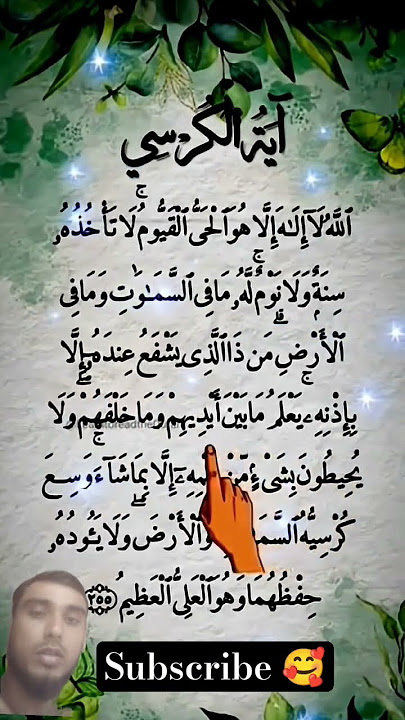 آيَةُ الْكُرْسِي
ٱللَّهُ لَآ إِلَـٰهَ إِلَّا هُوَ ٱلْحَىُّ ٱلْقَيُّومُ ۚ لَا تَأْخُذُهُۥ
سِنَةٌ وَلَا نَوْمٌ ۚ لَّهُۥ مَا فِى ٱلسَّمَـٰوَٰتِ وَمَا فِى
ٱلْأَرْضِ ۗ مَن ذَا ٱلَّذِى يَشْفَعُ عِندَهُۥٓ إِلَّا
بِإِذْنِهِۦ ۚ يَعْلَمُ مَا بَيْنَ أَيْدِيهِمْ وَمَا خَلْفَهُمْ ۖ وَلَا
يُحِيطُونَ بِشَىْءٍ مِّنْ إِلَّا بِمَا شَآءَ ۚ وَسِعَ
كُرْسِيُّهُ وَٱلْأَرْضَ ۖ وَلَا يَـُٔودُهُۥ
حِفْظُهُمَا ۚ وَهُوَ ٱلْعَلِىُّ ٱلْعَظِيمُ ﴿٢٥٥﴾
Subscribe 🥰